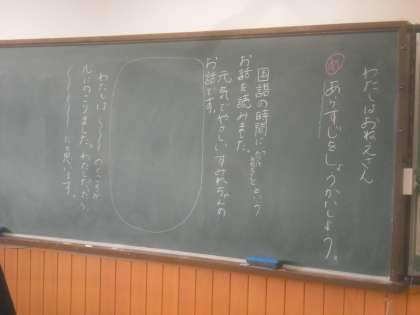 わたしはおねえさん
め あらすじをしょうかいしよう。
国語の時間に、「　」という
お話を読みました。
元気でやさしいすみれちゃんの
お話です。
わたしは〜〜のところが
心にのこりました。わたしだったら
〜〜〜と思います。